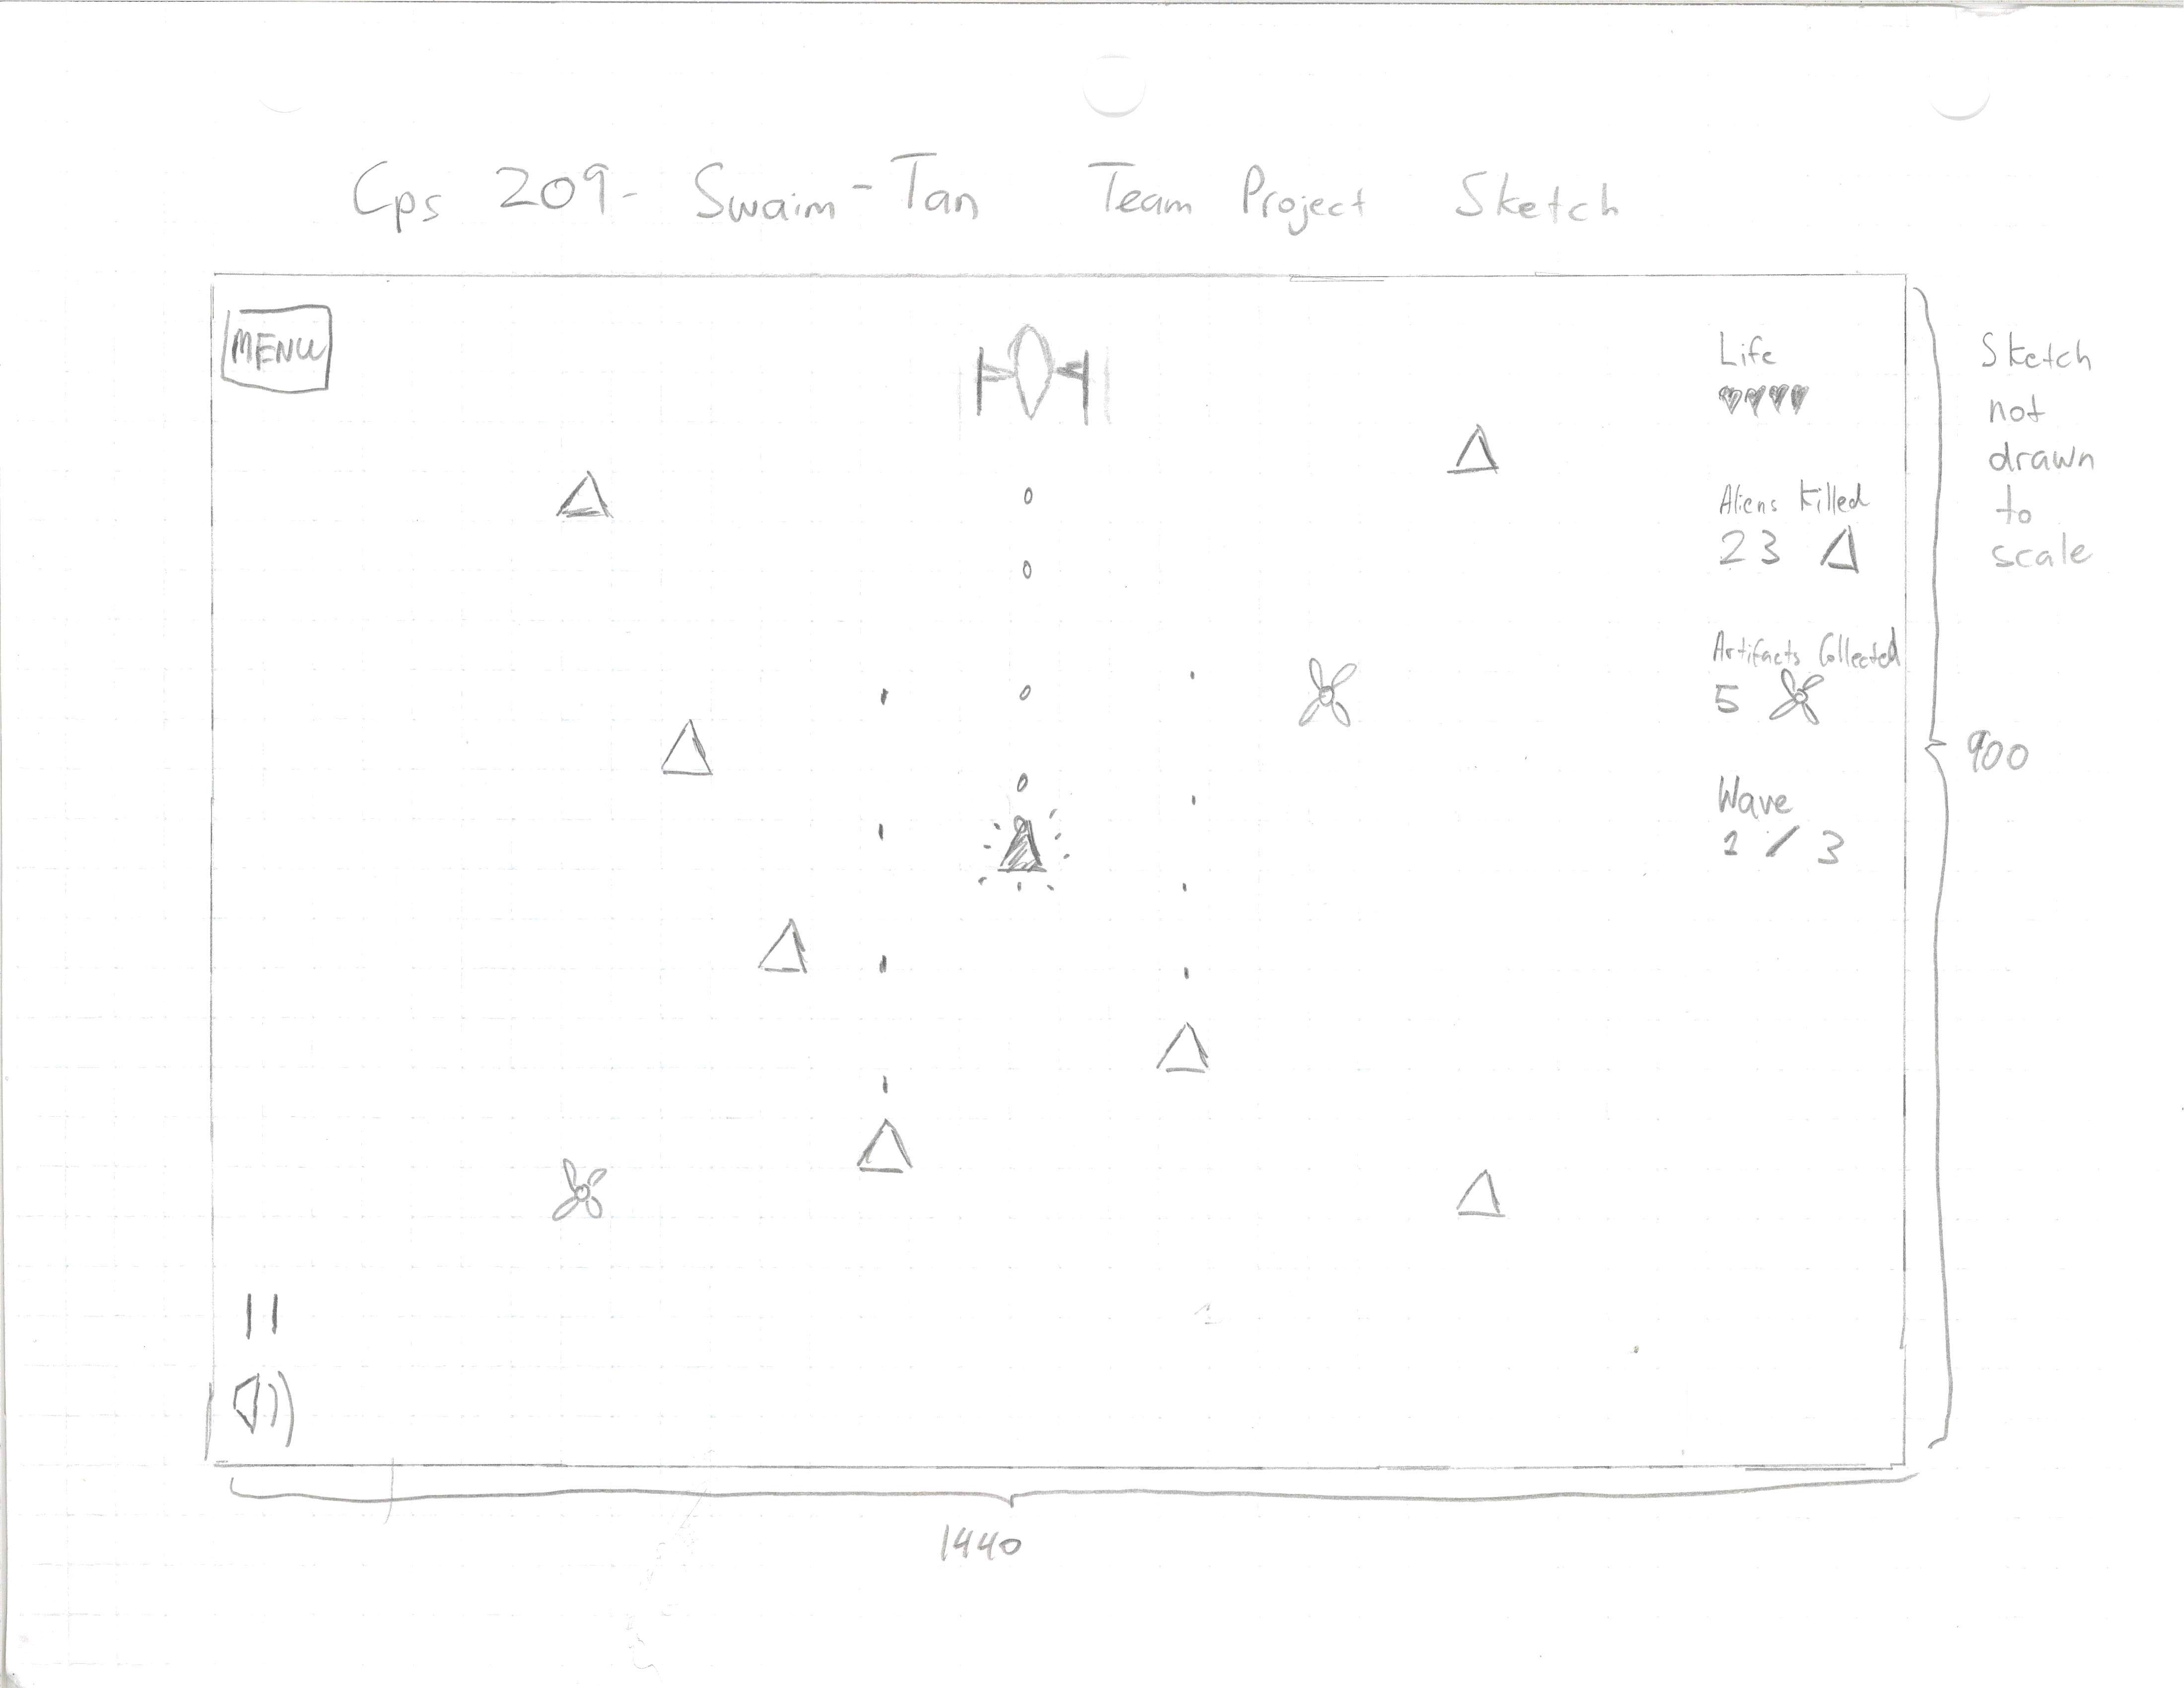 Cps 209- Swaim-Tan Team Project Sketch
MENU
Life
Aliens Killed
23
Artifacts Collected
5
Wave
1 / 3
Sketch
not
drawn
to
scale
900
1440